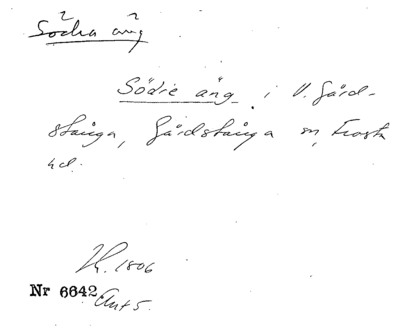 Södra äng
Södre äng i V. Gård-
stånga, Gårdstånga sn, Frosta
hd.
1806
Nr 6642